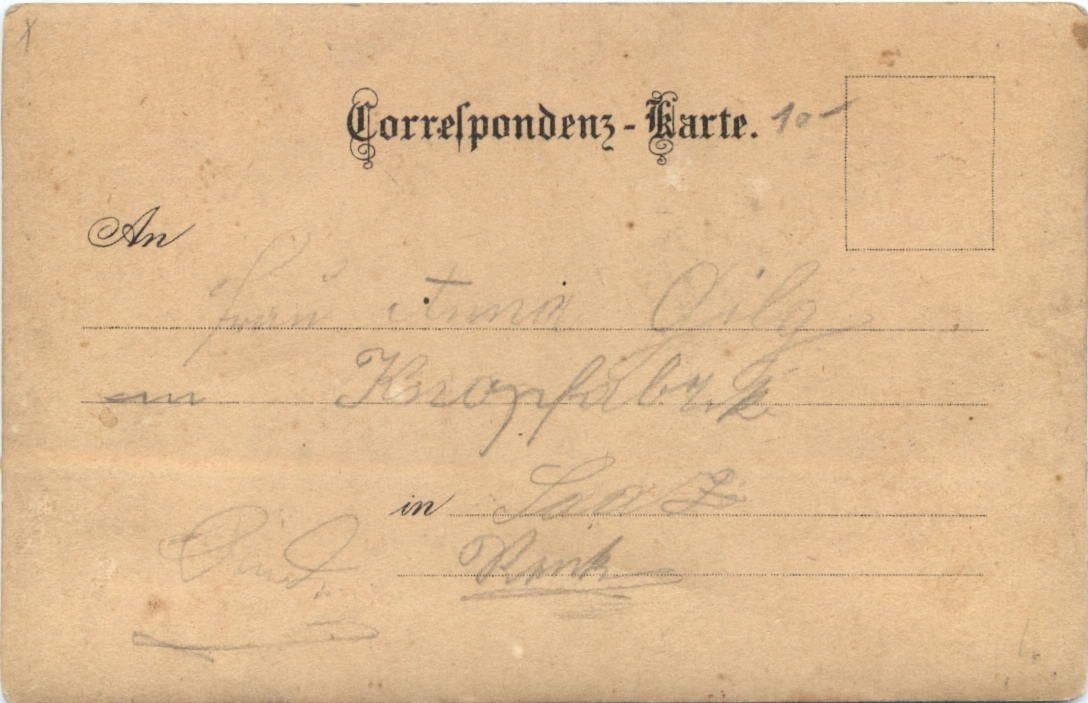 Correspondenz-Karte. 10-
An
Frau Anna Gilg
Knopfabrik
in Saaz